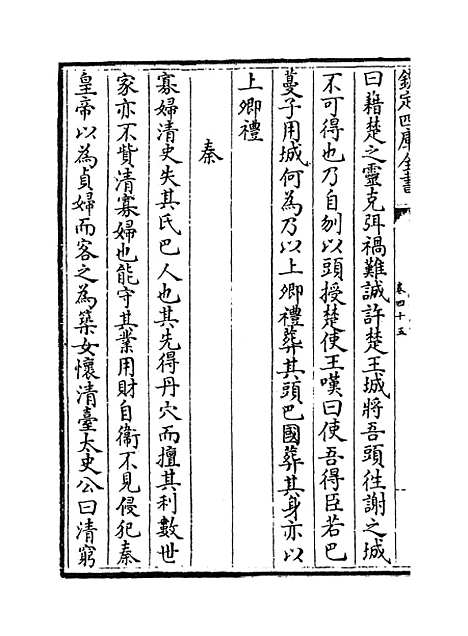 欽定四庫全書
卷四十五
曰藉楚之靈克弭禍難誠許楚王城將吾頭往謝之城
不可得也乃自刎以頭授楚使王嘆曰使吾得臣若巴
蔓子用城何為乃以上卿禮葬其頭巴國葬其身亦以
上卿禮
秦
寡婦清史失其氏巴人也其先得丹穴而擅其利數世
家亦不貲清寡婦也能守其業用財自衛不見侵犯秦
皇帝以為貞婦而客之為築女懷清臺太史公曰清窮